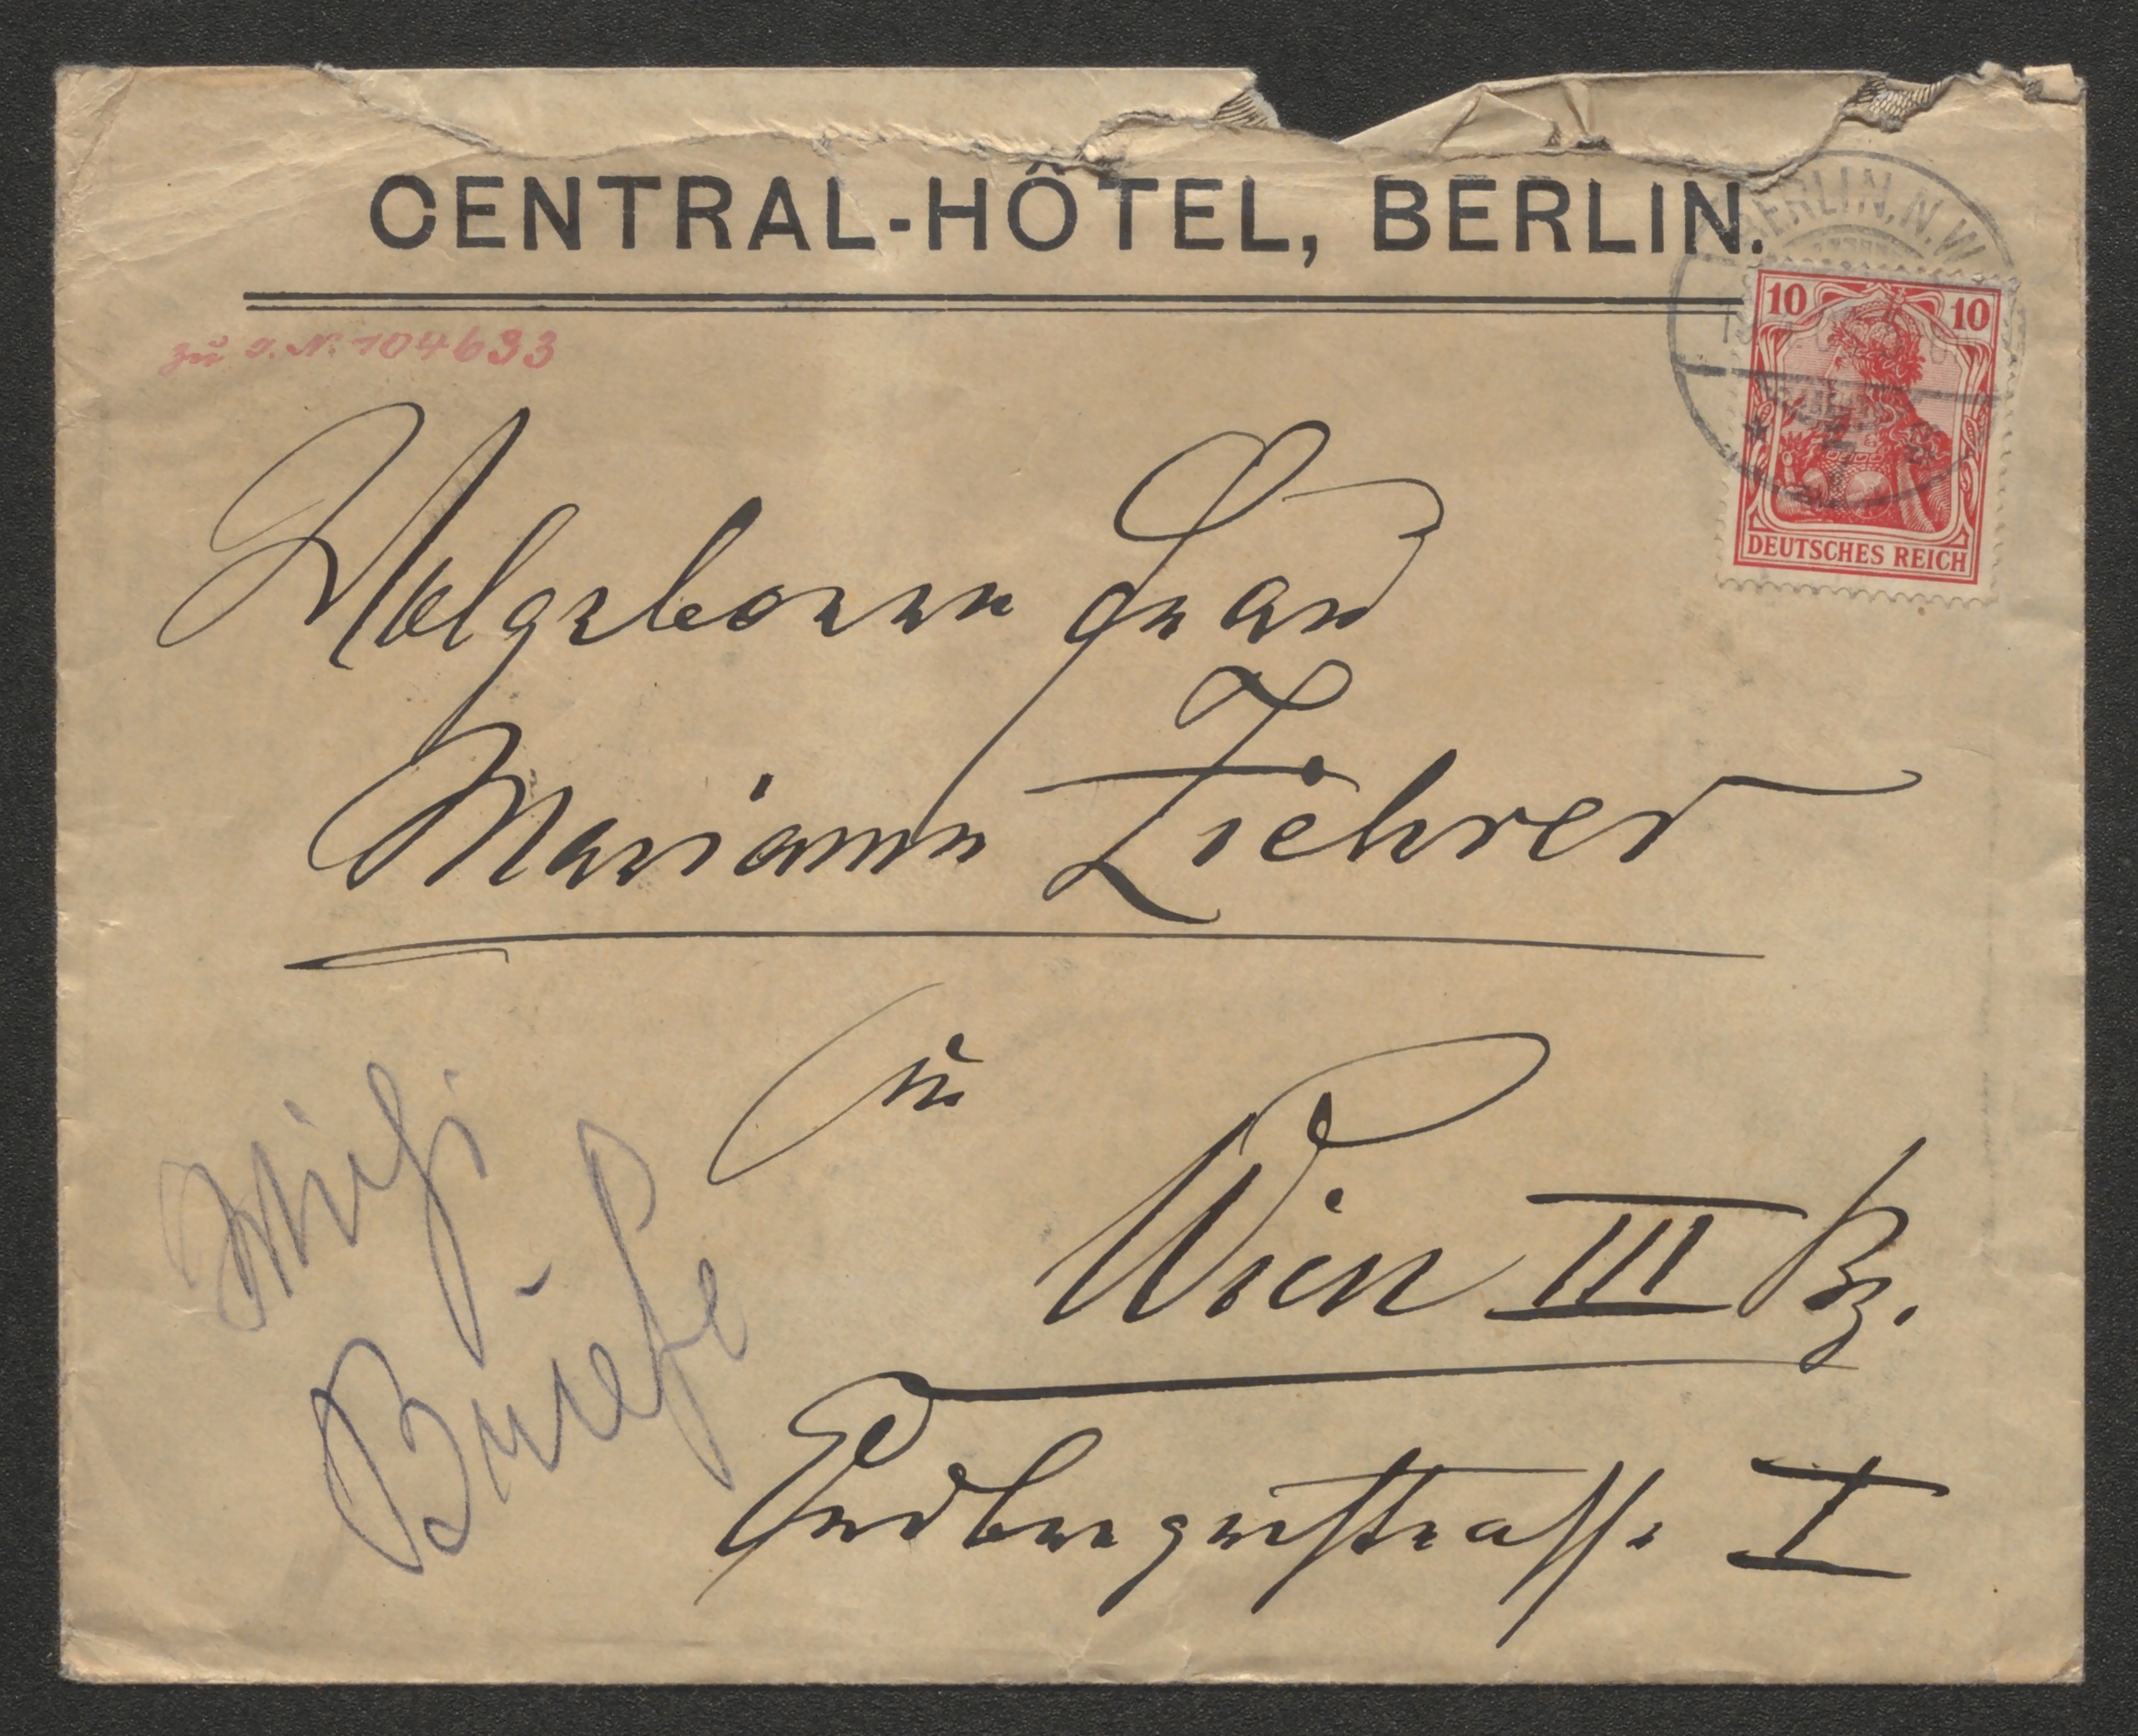 CENTRAL-HÔTEL, BERLIN.
BERLIN, N.W.
10 10
DEUTSCHES REICH
zu I. N. 104633
Wolgeboren Frau
Mariann Ziehrer
in
Wien III Bz.
Erdbergerstrasse I
Briefe